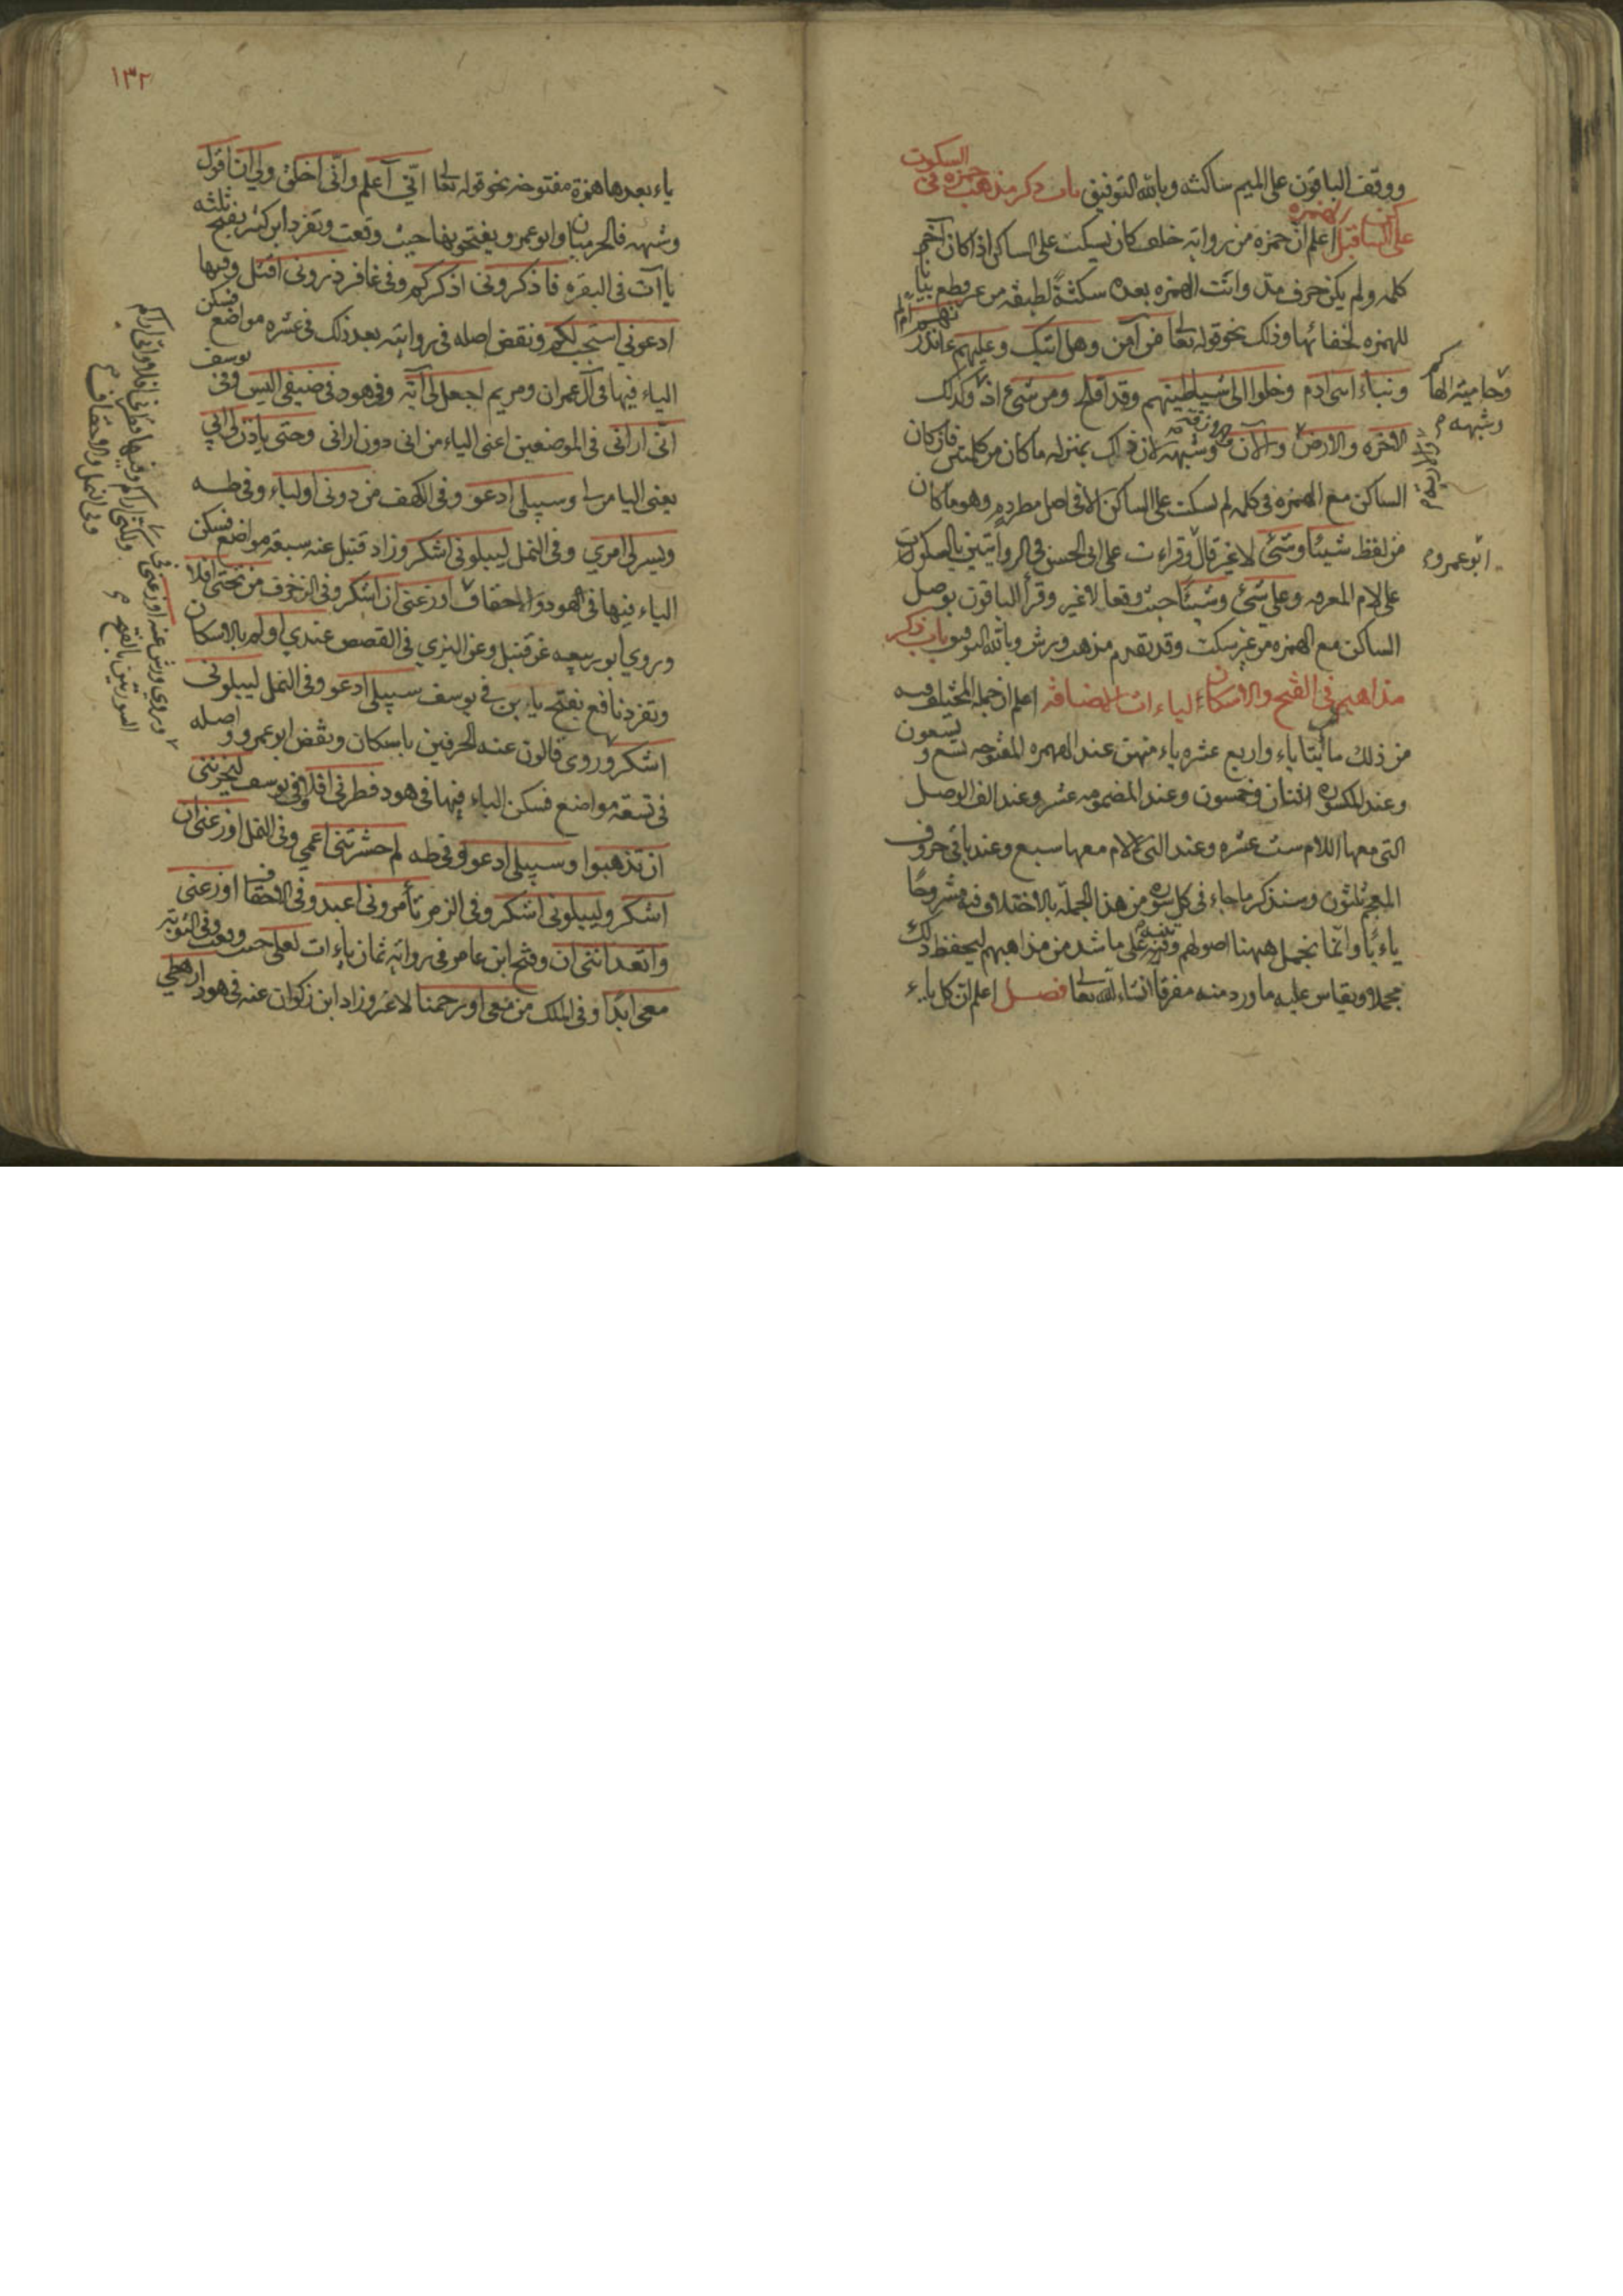 ووقف الباقون على الميم ساكنة وبالله التوفيق باب ذكر مذهب حمزة في السكوت
على الساكن قبل الهمزه اعلم ان حمزة من رواية خلف كان يسكت على الساكن اذا كان آخر
كلمه ولم يكن حرف مدّ واتت الهمزه بعده سكتةً لطيفه من غير قطع بيانا
للهمزه لخفائها وذلك نحو قوله تعالى من آمن وهل اتيك وعليهم ءانذرتهم ام لم
ونباء ابنى ادم وخلوا الى شيطينهم وقد افلح ومن شئ اذ وكذلك
الاخره والارض والآن وشبهه لان ذلك بمنزله ما كان من كلمتين فان كان
الساكن مع الهمزه في كلمه لم يسكت على الساكن الا في اصل مطرد وهو ما كان
من لفظ شيئا وشئ لا غير قال وقراءت على ابى الحسن في الروايتين بالسكوت
على لام المعرفه وعلى شئ وشيئا حيث وقعا لا غير وقرأ الباقون بوصل
الساكن مع الهمزه من غير سكت وقد تقدم مذهب ورش وبالله التوفيق باب ذكر
مذاهبهم في الفتح والاسكان لياءات الاضافه اعلم ان جمله المختلف فيه
من ذلك مائتا ياء واربع عشره ياء منهن عند الهمزه المفتوحه تسع وتسعون
وعند المكسوره اثنتان وخمسون وعند المضمومه عشر وعند الف الوصل
التي معها اللام ست عشره وعند التي لا لام معها سبع وعند باقي حروف
المعجم ثلثون وسنذكر ما جاء في كل سوره من هذه الجملة بالاختلاف فيه مشروحًا
ياءً ياءً وانّما نجمل ههنا اصولهم وننبه على ما شذ من مذاهبهم ليحفظ ذلك
مجملا ويقاس عليه ما ورد منه مفرقا انشاء الله تعالى فصل اعلم ان كل ياء
وشبهه
ابو عمرو
١٣٢
ياء بعدها همزة مفتوحه نحو قوله تعالى انّي اعلم وانّى اخلق ولي ان اقول
وشبهه فالحرميان وابو عمرو يفتحونها حيث وقعت وتفرد ابن كثير بفتح ثلثه
ياآت في البقره فاذكرونى اذكركم وفى غافر ذروني اقتل وفيها
ادعوني استجب لكم ونقض اصله في روايته بعد ذلك في عشره مواضع فسكن
الياء فيها في آل عمران ومريم اجعل لى آية وفى هود في ضيفى اليس وفى يوسف
انّى ارانى في الموضعين اعنى الياء من انى دون ارانى وحتى ياذن لى ابى
يعنى اليا من لى وسبيلى ادعو وفى الكهف من دونى اولياء وفى طه
ويسر لى امري وفى النمل ليبلونى اشكر وزاد قنبل عنه سبعه مواضع فسكن
الياء فيها في هود والاحقاف اوزعنى ان اشكر وفى الزخرف من تحتى افلا
وروي ابو ربيعه عن قنبل وعن البزي في القصص عندي اولم بالاسكان
وتفرد نافع بفتح ياءين في يوسف سبيلى ادعو وفى النمل ليبلونى
اشكر وروى قالون عنه الحرفين باسكان ونقض ابو عمرو اصله
في تسعه مواضع فسكن الياء فيها في هود فطرنى افلا وفى يوسف ليحزننى
ان تذهبوا وسبيلى ادعو وفى طه لم حشرتنى اعمي وفى النمل اوزعنى ان
اشكر وليبلونى اشكر وفى الزمر تأمرونى اعبد وفى الاحقاف اوزعنى
واتعداننى ان وفتح ابن عامر في روايته ثمان ياءات لعلى حيث وقعت وفى التوبة
معى ابدًا وفى الملك من معى او رحمنا لا غير وزاد ابن ذكوان عنه في هود ارهطي
انى اراكم وفيها فطرنى افلا وانى اراكم
وروى ورش عنه اوزعنى في
السورتين بالفتح
ولكنى اراكم
وفى النمل والاحقاف